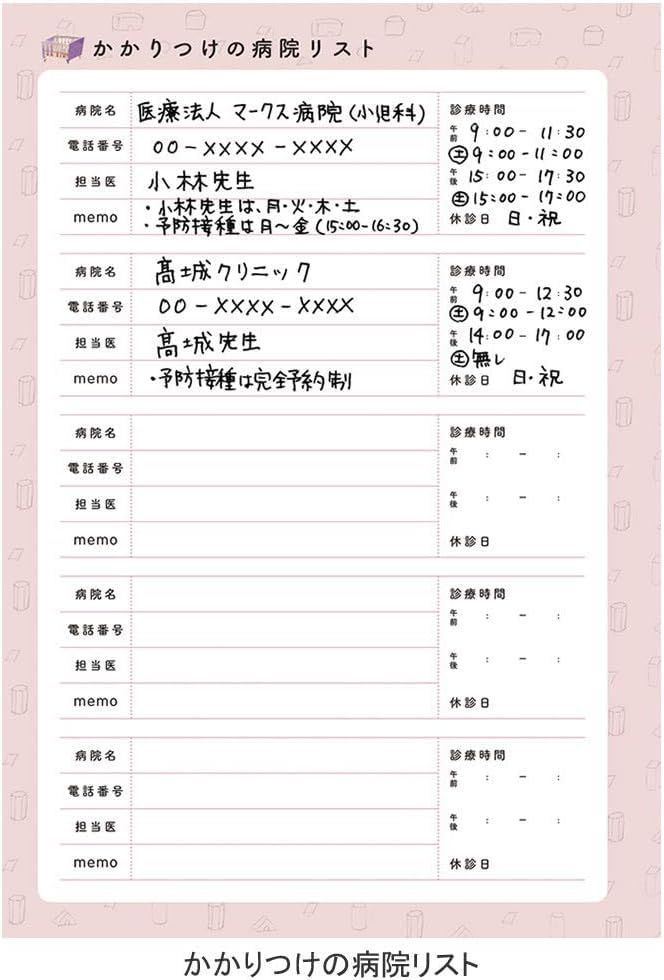 かかりつけの病院リスト
病院名 医療法人 マークス病院(小児科)
電話番号 00-XXXX-XXXX
担当医 小林先生
memo ・小林先生は、月・火・木・土
・予防接種は月〜金(15:00-16:30)
診療時間
午前 9:00-11:30
土 9:00-11:00
午後 15:00-17:30
土 15:00-17:00
休診日 日・祝
病院名 髙城クリニック
電話番号 00-XXXX-XXXX
担当医 髙城先生
memo ・予防接種は完全予約制
診療時間
午前 9:00-12:30
土 9:00-12:00
午後 14:00-17:00
土 無し
休診日 日・祝
病院名
電話番号
担当医
memo
診療時間
午前 : - :
午後 : - :
休診日
病院名
電話番号
担当医
memo
診療時間
午前 : - :
午後 : - :
休診日
病院名
電話番号
担当医
memo
診療時間
午前 : - :
午後 : - :
休診日
かかりつけの病院リスト